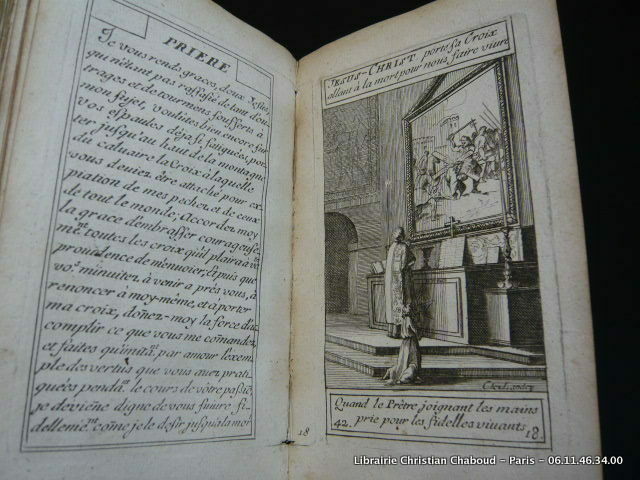 PRIERE
Je vous rends graces, doux Jesus,
qui n'étant pas rassasié de tant d'ou-
trages et de tourmens soufferts à
mon sujet, voulutes bien encore sur
vos espaules déja si fatiguées, por-
ter jusqu'au haut de la montagne
du caluaire la Croix à laquelle
vous deuiez être attaché pour ex-
piation de mes pechez et de ceux
de tout le monde; Accordez moy
la grace d'embrasser courageuse-
toutes les croix qu'il plaira à
prouidence de m'enuoier, Et puis que
minuitez à venir a près vous, à
renoncer a moy-même, et à porter
ma croix, doñez-moy la force d'ac-
complir ce que vous me comandez,
et faites par amour l'exem-
ple des vertus que vous auez prati-
quées le cours de vôtre
je deviéne digne de vous suiure fi-
come je le desir jusqu'à la mort
18
JESUS-CHRIST porte sa Croix
allant à la mort pour nous faire viure
Quand le Prêtre joignant les mains
42. prie pour les fidelles viuants 18.
Librairie Christian Chaboud - Paris - 06.11.46.34.00